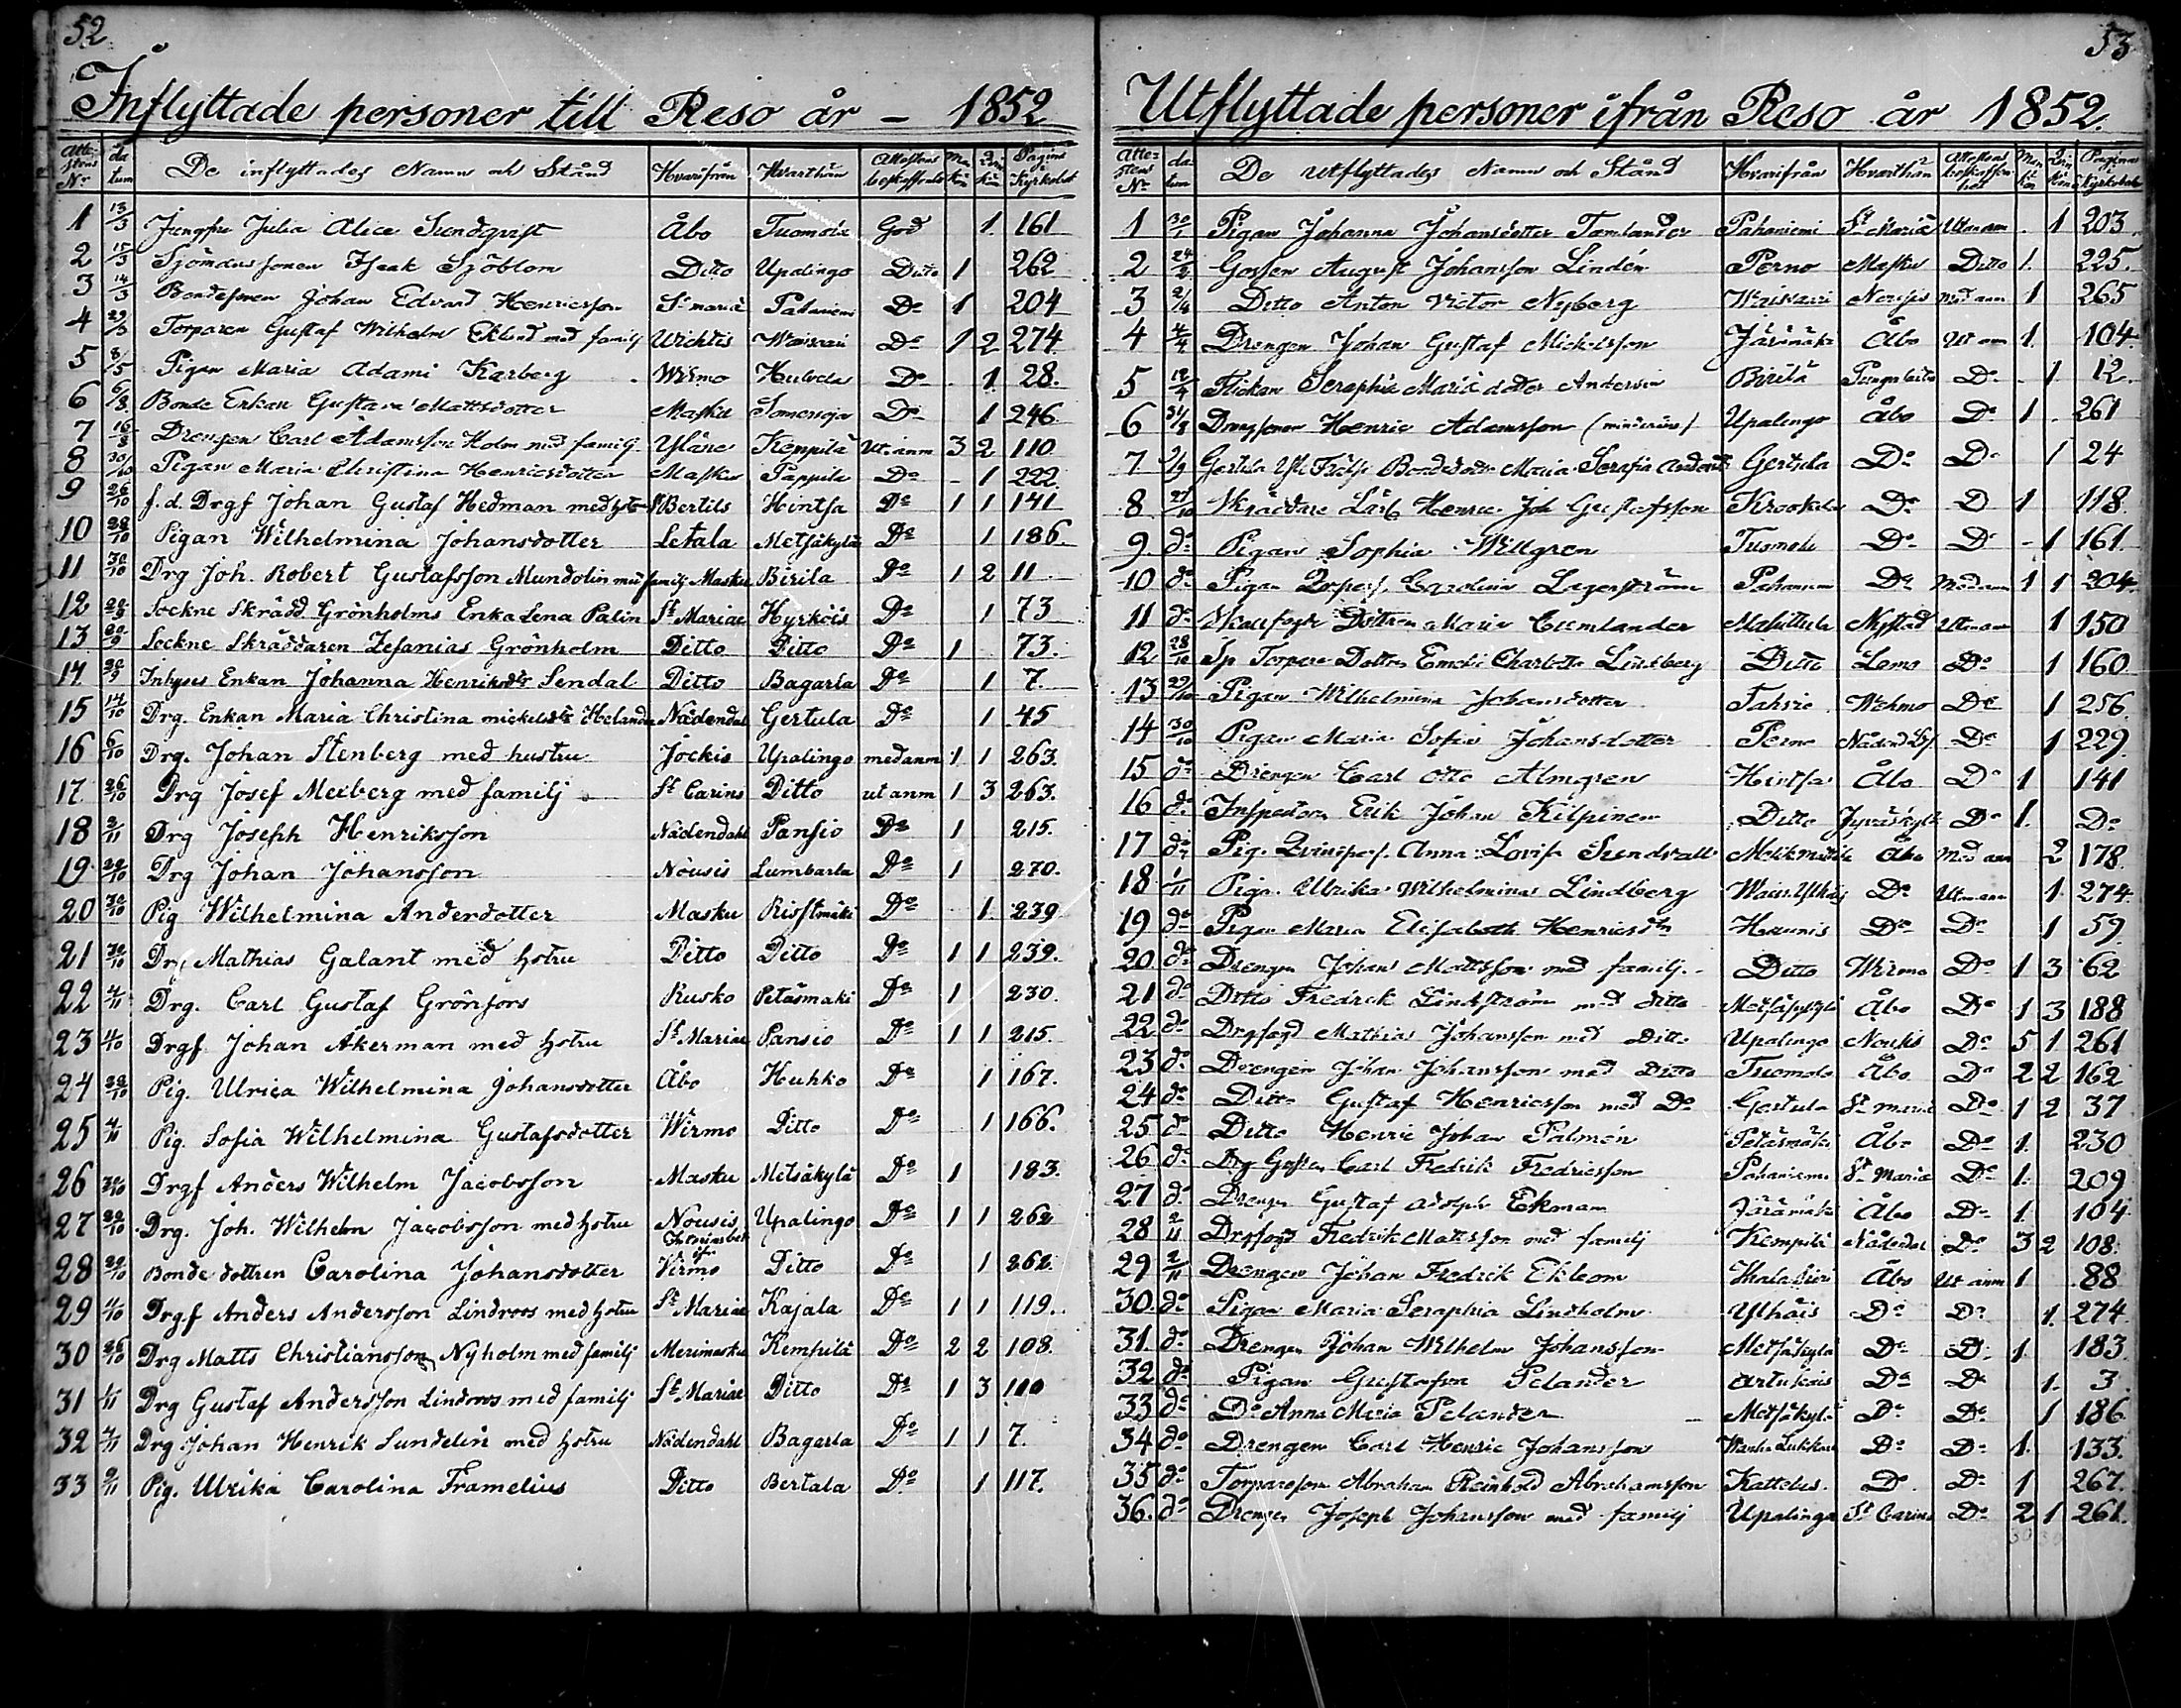 52
Inflyttade personer till Reso år - 1852
Attestens Nr datum De inflyttades Namn och Stånd Hvarifrån Hvarthän Attestens beskaffenhet Mankön Qvinkön Pagina i Kyrkobok
1 13/3 Jungfru Julia Alice Sundqvist Åbo Tuomola God 1 161
2 15/3 Sjömanssonen Isaak Sjöblom Ditto Upalingo Ditto 1 262
3 14/3 Bondesonen Johan Edvard Henricsson St Mariæ Pahaniemi Do 1 204
4 Torparen Gustaf Wilhelm Eklund med familj Wichtis Waisvari Do 1 2 274
5 8/5 Pigan Maria Adami Karberg Wirmo Huhvola Do 1 28.
6 6/8 Bonde Enkan Gustava Mattsdotter Masku Somersoja Do 1 246
7 16/8 Drengen Carl Adamsson Holm med familj Yläne Kempilä Ut. anm 3 2 110
8 30/10 Pigan Maria Christina Henricsdotter Masku Pappila Do - 1 222
9 26/10 f. d. Drgf Johan Gustaf Hedman med hstr St Bertils Hintsa Do 1 1 141
10 28/10 Pigan Wilhelmina Johansdotter Letala Metsäkylä Do 1 186.
11 30/10 Drg Joh. Robert Gustafsson Mundolin med familj Masku Birila Do 1 2 11
12 Sockne Skrädd Grönholms Enka Lena Palin St Mariae Hyrköis Do 1 73
13 Sockne Skräddaren Zefanias Grönholm Ditto Ditto Do 1 73.
14 Inhyses Enkan Johanna Henriksdtr Sendal Ditto Bagarla Do 1 7.
15 14/10 Drg. Enkan Maria Christina mickelsdtr Helander Nådendal Gertula Do 1 45
16 6/10 Drg. Johan Stenberg med hustru Jockis Upalingo med anm 1 1 263.
17 26/10 Drg Josef Mexberg med familj St Carins Ditto ut anm 1 3 263.
18 2/11 Drg Joseph Henriksson Nådendahl Pansio Do 1 215.
19 Drg Johan Johansson Nousis Lumbarla Do 1 270.
20 30/10 Pig Wilhelmina Andersdotter Masku Ristimäki Do 1 239
21 30/10 Drg Mathias Galant med hstru Ditto Ditto Do 1 1 239.
22 4/11 Drg. Carl Gustaf Grönfors Rusko Petäsmäki Do 1 230.
23 Drgf Johan Åkerman med hstru St Mariae Pansio Do 1 1 215.
24 Pig. Ulrica Wilhelmina Johansdotter Åbo Huhko Do 1 167.
25 4/11 Pig. Sofia Wilhelmina Gustafsdotter Wirmo Ditto Do 1 166.
26 30/10 Drgf Anders Wilhelm Jacobsson Masku Metsäkylä Do 1 183.
27 Drg. Joh. Wilhelm Jacobsson med hstru Nousis Upalingo Do 1 1 262
28 Bonde dottren Carolina Johansdotter Virmo Ditto Do 1 262.
29 Drgf Anders Andersson Lindroos med hstru St Mariae Kajala Do 1 1 119.
30 26/10 Drg Matts Christiansson Nyholm med familj Merimasku Kempilä Do 2 2 108.
31 Drg Gustaf Andersson Lindroos med familj St Mariae Ditto Do 1 3 110
32 4/11 Drg Johan Henrik Sundelin med hstru Nådendahl Bagarla Do 1 1 7.
33 9/11 Pig. Ulrika Carolina Framelius Ditto Bertala Do 1 117.
53
Utflyttade personer ifrån Reso år 1852.
Attestens No datum De utflyttades Namn och Stånd Hvarifrån Hvarthän Attestens beskaffenhet Mankön Qvinkön Pagina i Kyrkobok
1 30/1 Pigan Johanna Johansdotter Tamlander Pahaniemi St Mariæ Utan anm 1 203
2 24/2 Gossen August Johansson Lindén Perno Masku Ditto 1. 225.
3 Ditto Anton Victor Nyberg Waisvari Nousis Med anm 1 265
4 4/4 Drengen Johan Gustaf Mickelsson Järämäki Åbo Ut anm 1. 104
5 Flickan Seraphia Maria dotter Andersin Birilä Do 1 12.
6 31/8 Drengsonen Henric Adamsson (minderårig) Upalingo Åbo Do 1 261
7 Gertula Bondedottr Maria Serafia Gertula Do Do 1 24
8 27/10 Skräddare Lärl Henric Joh Gustafsson Krookila Do D 1 118.
9 do Pigan Sophia Willgren Tuomola Do Do - 1 161.
10 do Pigan Carolina Lagerström Pahaniemi Do Med anm 1 1 204.
11 do Dottren Maria Cumlander Mahittula Nystad Utan anm 1 150
12 28/10 Sp Torpare Dottren Charlotta Lindberg Ditto Lemo Do 1 160
13 29/10 Pigan Wilhelmina Johansdotter Tahvio Wehmo Do 1 256
14 30/10 Pigan Maria Sofia Johansdotter Perno Do 1 229.
15 do Drengen Carl Otto Almgren Hintsa Åbo Do 1 141
16 do Inspectorn Erik Johan Kilpinen Ditto Jyväskylä Do 1. Do
17 do Pig. Anna Lovisa Sundvall Åbo Med anm 2 178.
18 1/11 Pigan Ulrika Wilhelmina Lindberg Do Utan anm 1 274.
19 do Pigan Maria Elisabeth Henricsdtr Haunis Do Do 1 59
20 do Drengen Johan Mattsson med familj Ditto Wirmo Do 1 3 62
21 do Ditto Fredrik Lindström med Ditto Metsäkylä Åbo Do 1 3 188
22 do Drgfogd Mathias Johansson med Ditto Upalingo Nousis Do 5 1 261
23 do Drengen Johan Johansson med Ditto Tuomola Åbo Do 2 2 162
24 do Ditto Gustaf Henricsson med Do Gertula St Mariæ Do 1 2 37
25 do Ditto Henric Johan Palmén Petäsmäki Åbo Do 1. 230
26 do Drg Gossen Carl Fredrik Fredricsson Pahaniemi St Mariæ Do 1. 209
27 do Drengen Gustaf Adolph Ekman Järämäki Åbo Do 1. 104
28 2/11 Drgfogd Fredrik Mattsson med familj Kempilä Nådendal Do 3 2 108.
29 2/11 Drengen Johan Fredrik Ekbom Åbo Ut anm 1 88
30 do Pigan Maria Seraphia Lindholm Ylhäis Do Do 1. 274
31 do Drengen Johan Wilhelm Johansson Metsäkylä Do D. 1. 183
32 do Pigan Gustafva Pelander Artukais Do Do 1. 3
33 do Do Anna Maria Pelander Metsäkylä Do Do 1 186
34 do Drengen Carl Henric Johansson Do Do 1. 133.
35 do Torparesson Abraham Reinhold Abrahamsson Kattelus. Do Do 1 267.
36. do Drengen Joseph Johansson med familj Upalingo St Carins Do 2 1 261.